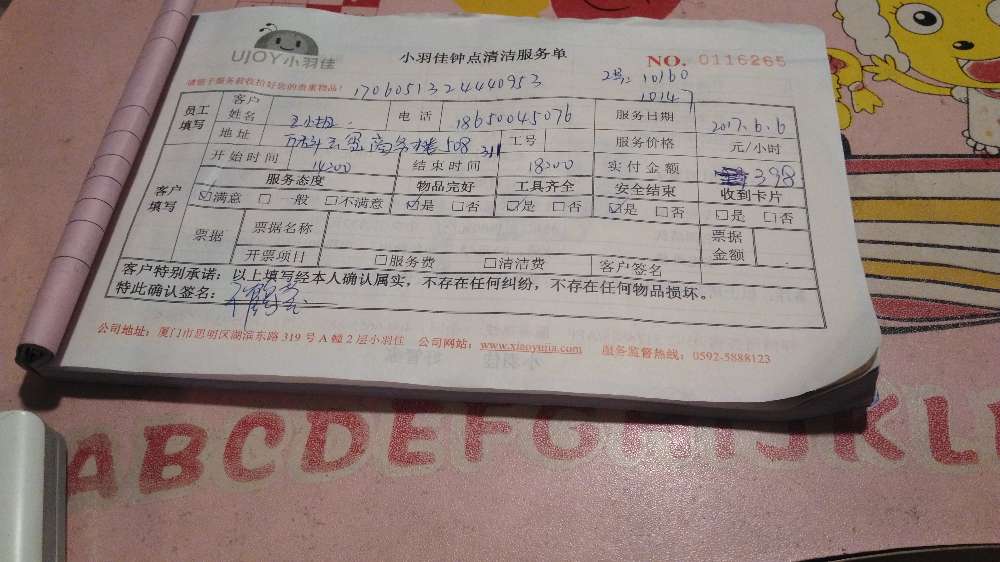 UJOY小羽佳
小羽佳钟点清洁服务单
NO. 0116265
请您于服务前收拾好您的贵重物品!
1706051324440953
10160
10147
员工填写
客户姓名
电话 18650045076
服务日期 2017.6.6
地址 508
工号
服务价格 元/小时
开始时间 14:00
结束时间 18:00
实付金额 398
客户填写
服务态度 物品完好 工具齐全 安全结束 收到卡片
☑满意 □一般 □不满意 ☑是 □否 ☑是 □否 ☑是 □否 □是 □否
票据
票据名称
票据金额
开票项目 □服务费 □清洁费 客户签名
客户特别承诺:以上填写经本人确认属实,不存在任何纠纷,不存在任何物品损坏。
特此确认签名:
公司地址:厦门市思明区湖滨东路 319 号 A 幢 2 层小羽佳 公司网站:www.xiaoyujia.com 服务监督热线:0592-5888123
ABCDEFGHIJKL